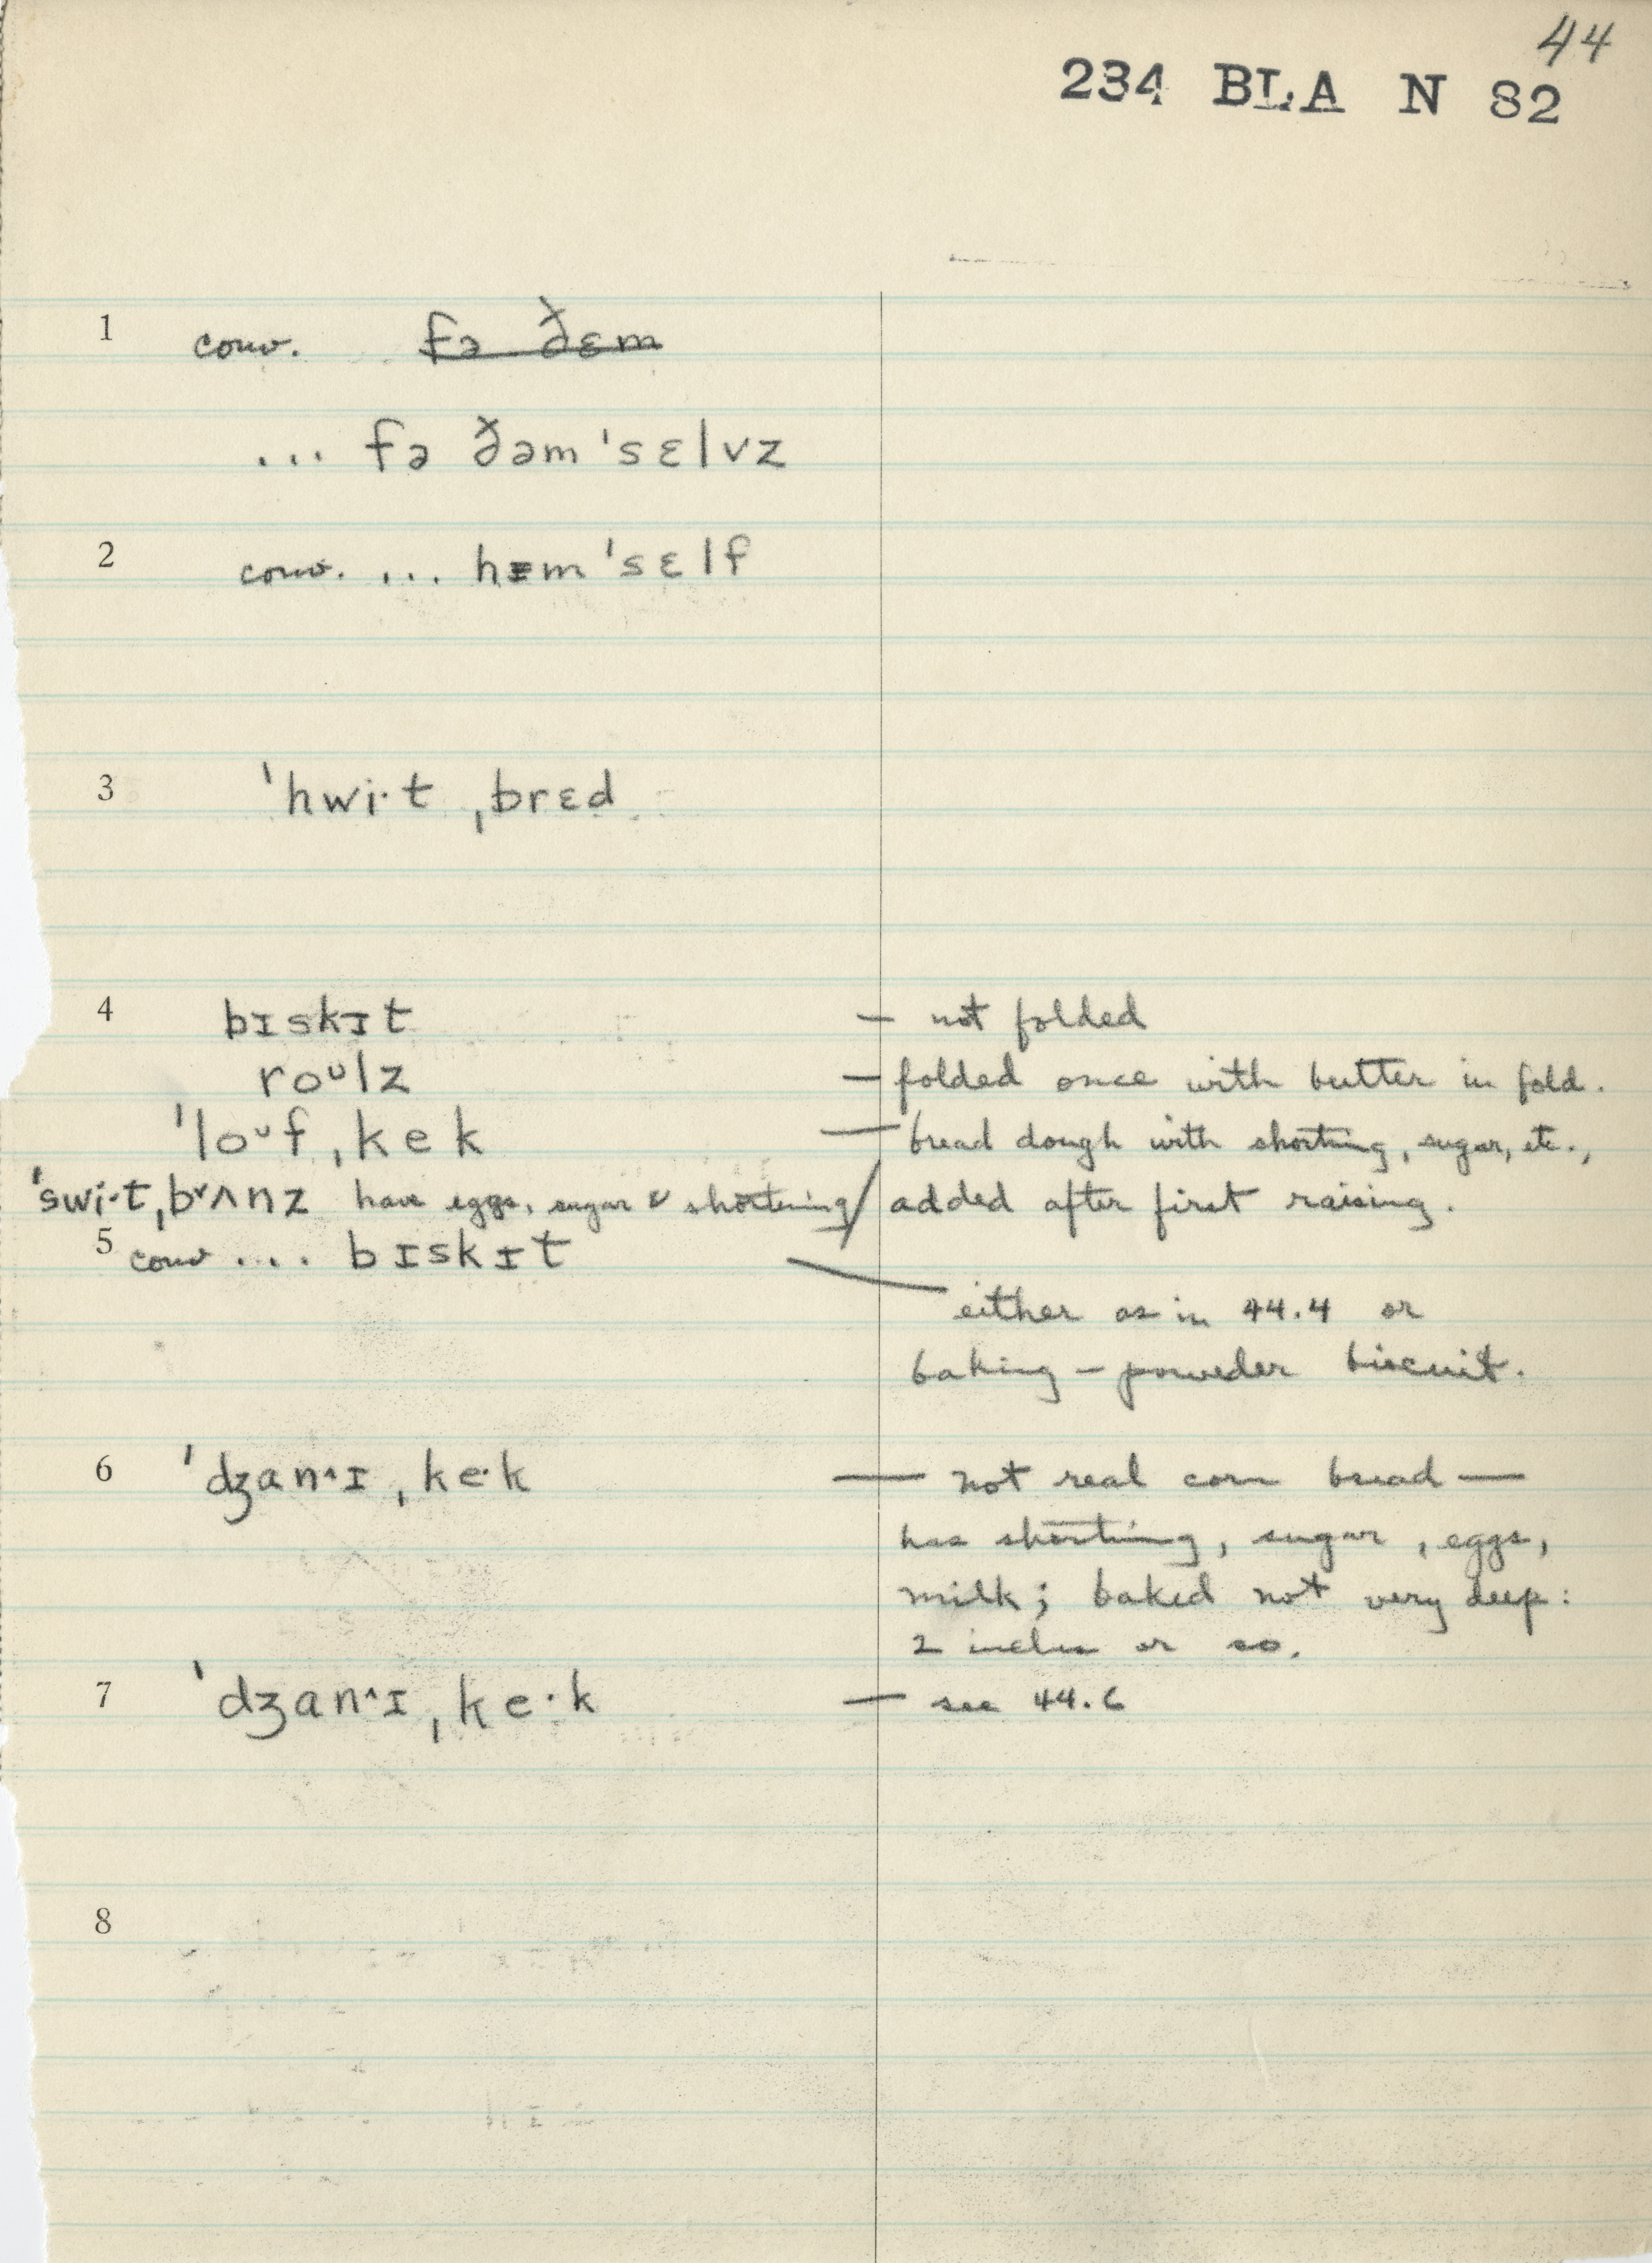 44
234 BLA N 82
1 conv. fə ðɛm
... fə ðəm ˈsɛlvz
2 conv. ... hɪm ˈsɛlf
3 ˈhwi·t ˌbrɛd
4 bɪskɪt — not folded
roᶷlz — folded once with butter in fold.
ˈloᶷf ˌkek — bread dough with shorting, sugar, etc.,
ˈswi·t ˌb˅ʌnz have eggs, sugar & shortening / added after first raising.
5 conv .... bɪskɪt — either as in 44.4 or
baking-powder biscuit.
6 ˈdʒan˄ɪ ˌke·k — not real corn bread —
has shorting, sugar, eggs,
milk; baked not very deep:
2 inches or so.
7 ˈdʒan˄ɪ ˌke·k — see 44.6
8